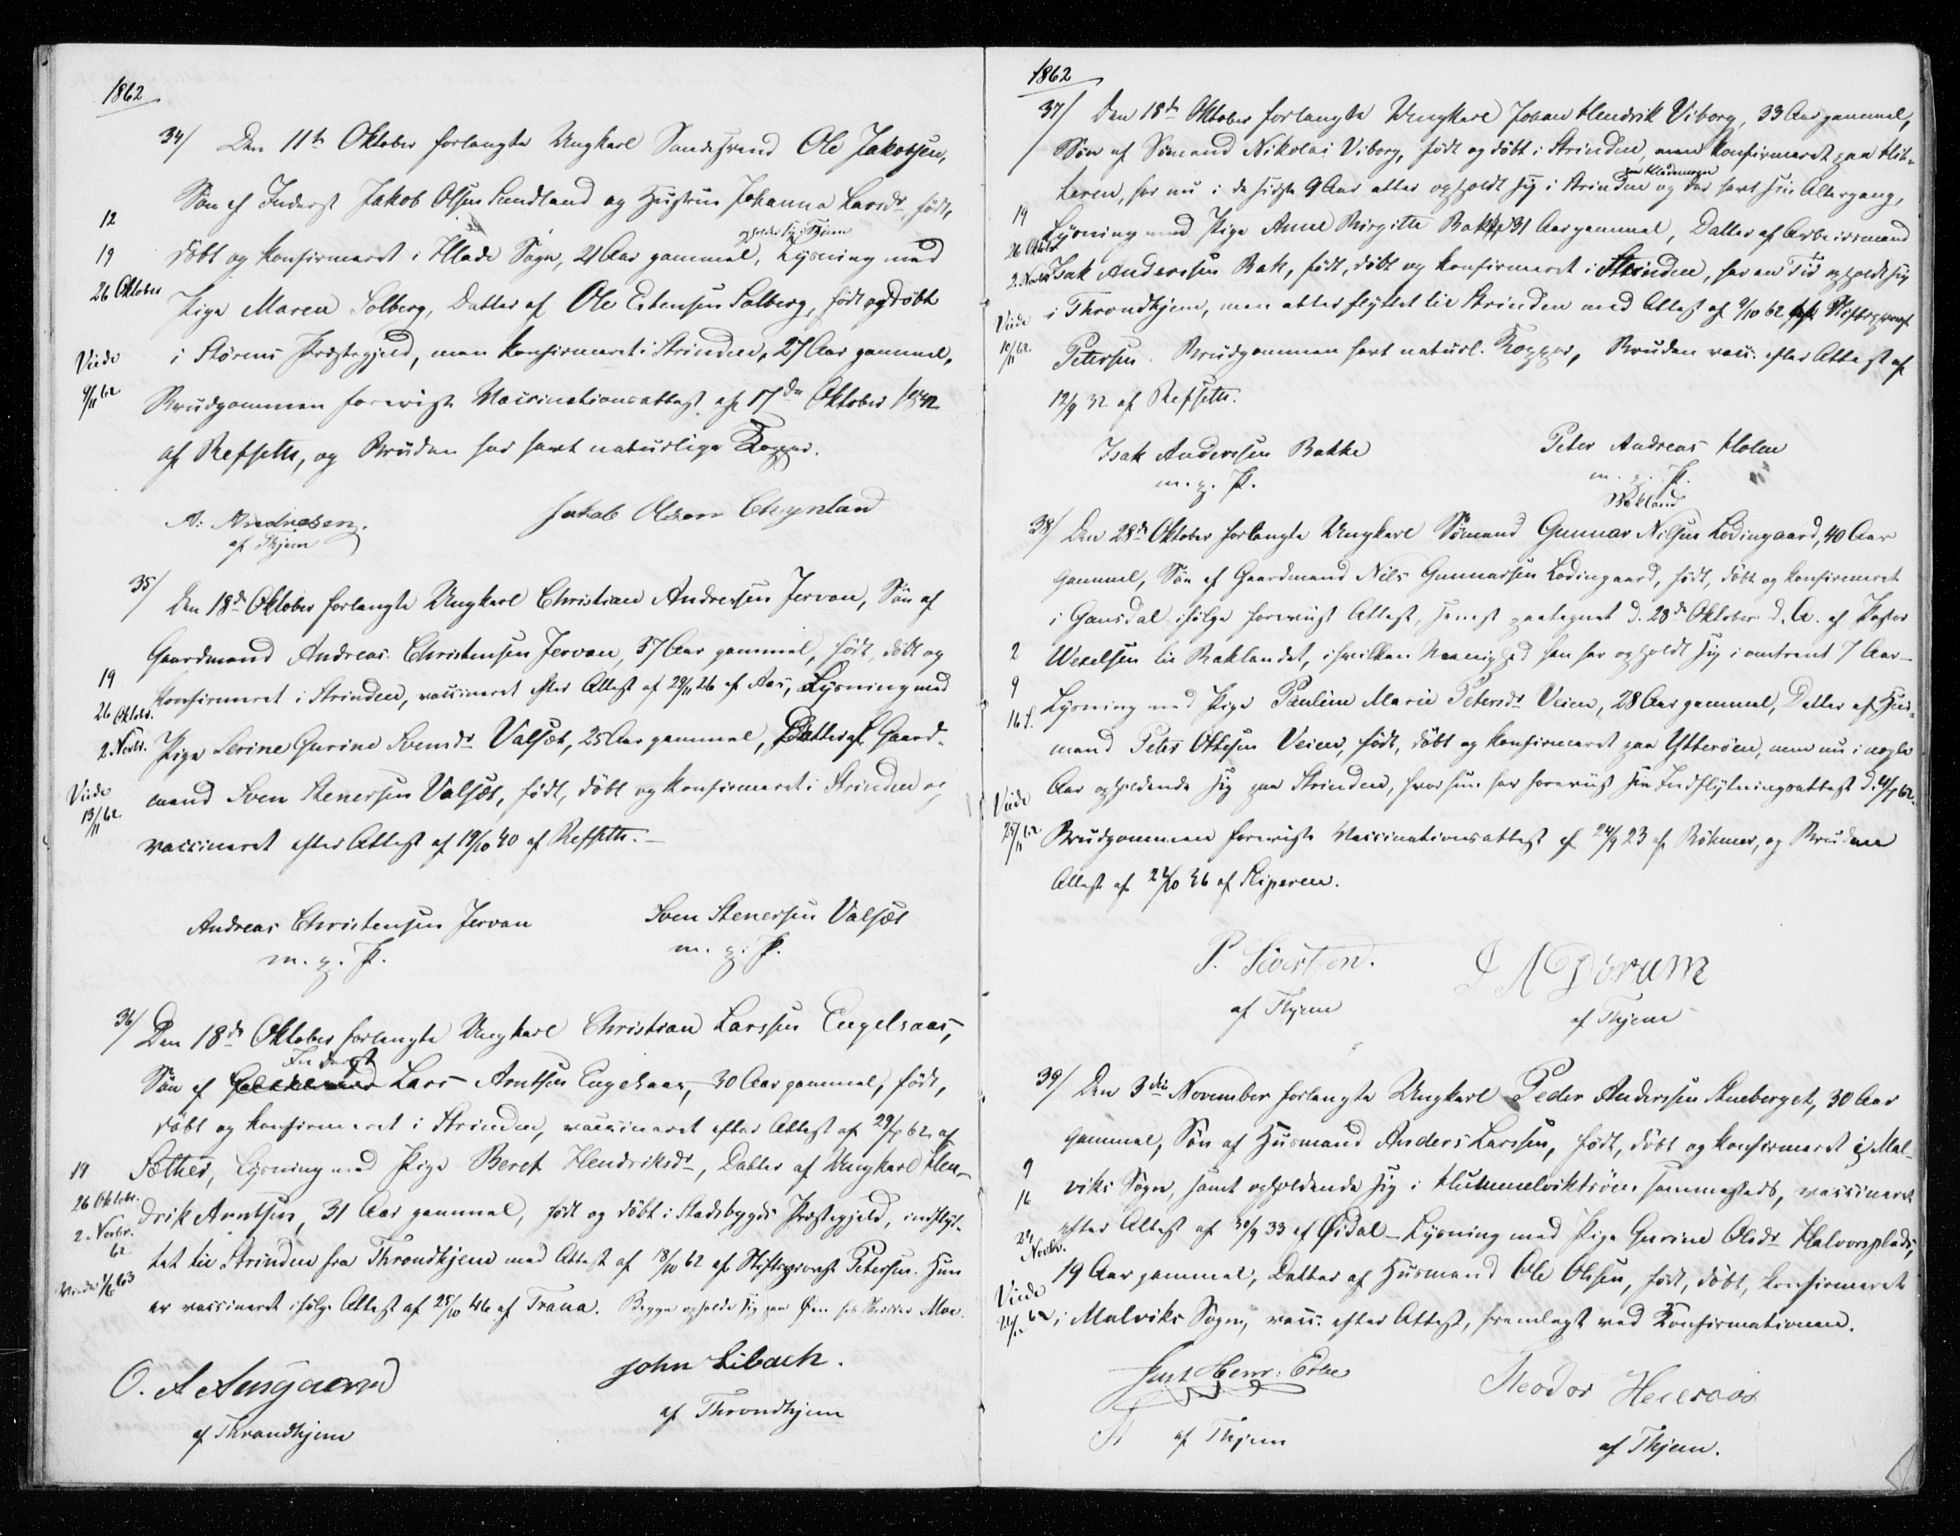 1862
34/ Den 11te Oktober forlangte Ungkarl Ole Jakobsen,
Søn af Inderst Jakob Olsen Sundland og Hustru Johanna Larsdr, født,
12
opholder sig i Thjem
19 døbt og konfirmeret i Hlade Sogn, 21 Aar gammel, Lysning med
26 Oktober Pige Maren Solberg, Datter af Ole Estensen Solberg, født og døbt
i Størens Præstegjeld, men konfirmeret i Strinden, 27 Aar gammel.
Viede
9/11 62 Brudgommen foreviste Vaccinationsattest af 17de Oktober 1842
af Refseth, og Bruden har havt naturlige Kopper.
A. Andresen.
af Thjem
Jakob Olsen
35/ Den 18de Oktober forlangte Ungkarl Christian Andresen Jervan, Søn af
Gaardmand Andreas Christensen Jervan, 37 Aar gammel, født, døbt og
19 konfirmeret i Strinden, vaccineret efter Attest af 29/11 26 af Aas, Lysning med
26 Oktobr.
2. Novbr. Pige Serine Gurine Svensdr Valsæt, 25 Aar gammel, Datter af Gaard-
mand Sven Stenersen Valsæt, født, døbt og konfirmeret i Strinden og
Viede
13/11 62 vaccineret efter Attest af 19/10 40 af Refseth.—
Andreas Christensen Jervan
m. p. P.
Sven Stenersen Valsæt
m. p. P.
36/ Den 18de Oktober forlangte Ungkarl Christian Larssen Engelsaas,
Inderst
Søn af Lars Arntsen Engelsaas, 30 Aar gammel, født,
døbt og konfirmeret i Strinden, vaccineret efter Attest af 62 af
19 Sæther, Lysning med Pige Beret Hendriksdr, Datter af Ungkarl Hen-
26 Oktobr.
2. Novbr.
62
drik Arntsen, 31 Aar gammel, født og døbt i Stadsbygds Præstegjeld, indflyt-
tet til Strinden fra Throndhjem med Attest af 18/10 62 af Stiftsprovst Petersen. Hun
Viede 63
er vaccineret ifølge Attest af 25/10 46 af Trana. Begge opholde sig paa Øen hos Moe.
O. A Aasgaard
af Throndhjem
John Libach.
af Throndhjem
1862
37/ Den 18de Oktober forlangte Ungkarl Johan Hendrik Viborg, 33 Aar gammel,
Søn af Sømand Nikolai Viborg, født og døbt i Strinden, men konfirmeret paa Hit-
paa Hlademoen
teren, har nu i de sidste 9 Aar atter opholdt sig i Strinden og der havt sin Altergang,
19 Lysning med Pige Anne Birgitte Bakke 31 Aar gammel, Datter af Arbeidsmand
26 Oktbr
2. Novbr Isak Anderssen Bak, født, døbt og konfirmeret i Strinden, har en Tid opholdt sig
i Throndhjem, men atter flyttet til Strinden med Attest af 9/10 62 af Stiftsprovst
Viede
10/11 62 Petersen. Brudgommen havt naturl. Kopper, Bruden vacc. efter Attest af
12/9 32 af Refseth.
Isak Anderssen Bakke
m. p. P.
Peter Andreas Holem
m. p. P.
Bakland
38/ Den 28de Oktober forlangte Ungkarl Sømand Gunnar Nilsen Lodingaard, 40 Aar
gammel, Søn af Gaardmand Nils Gunnarsen Lodingaard, født, døbt og konfirmeret
i Gausdal ifølge forevist Attest, samt paategnet d. 28de Oktober d. A. af Pastor
2 Wexelsen til Baklandet, i hvilken Menighed han har opholdt sig i omtrent 7 Aar—
9
16 d. Lysning med Pige Pauline Marie Petersdr Veien, 28 Aar gammel, Datter af Hus-
mand Peter Ottesen Veien, født, døbt og konfirmeret paa Ytterøen, men nu i nogle
Aar opholdende sig paa Strinden, hvor hun har forevist sin Indflytningsattest d. 62.
Viede
25/11 62 Brudgommen foreviste Vaccinationsattest af 24/9 23 af Böhmer, og Bruden
Attest af 36 af Stiperen.
P. Sivertsen.
af Thjem
J A Dörum
af Thjem
39/ Den 3die November forlangte Ungkarl Peder Anderssen Stueberget, 30 Aar
gammel, Søn af Husmand Anders Larssen, født, døbt og konfirmeret i Mal-
9
16 viks Sogn, samt opholdende sig i Hummelviktrøen sammesteds, vaccineret
23
Novbr. efter Attest af 30/9 33 af Øidal — Lysning med Pige Gurine Olsdr Halvorsplads,
19 Aar gammel, Datter af Husmand Ole Olssen, født, døbt, konfirmeret
Viede
62 i Malviks Sogn, vacc. efter Attest, fremlagt ved Konfirmationen.
Henr:
af Thjem
Theodor
af Thjem.